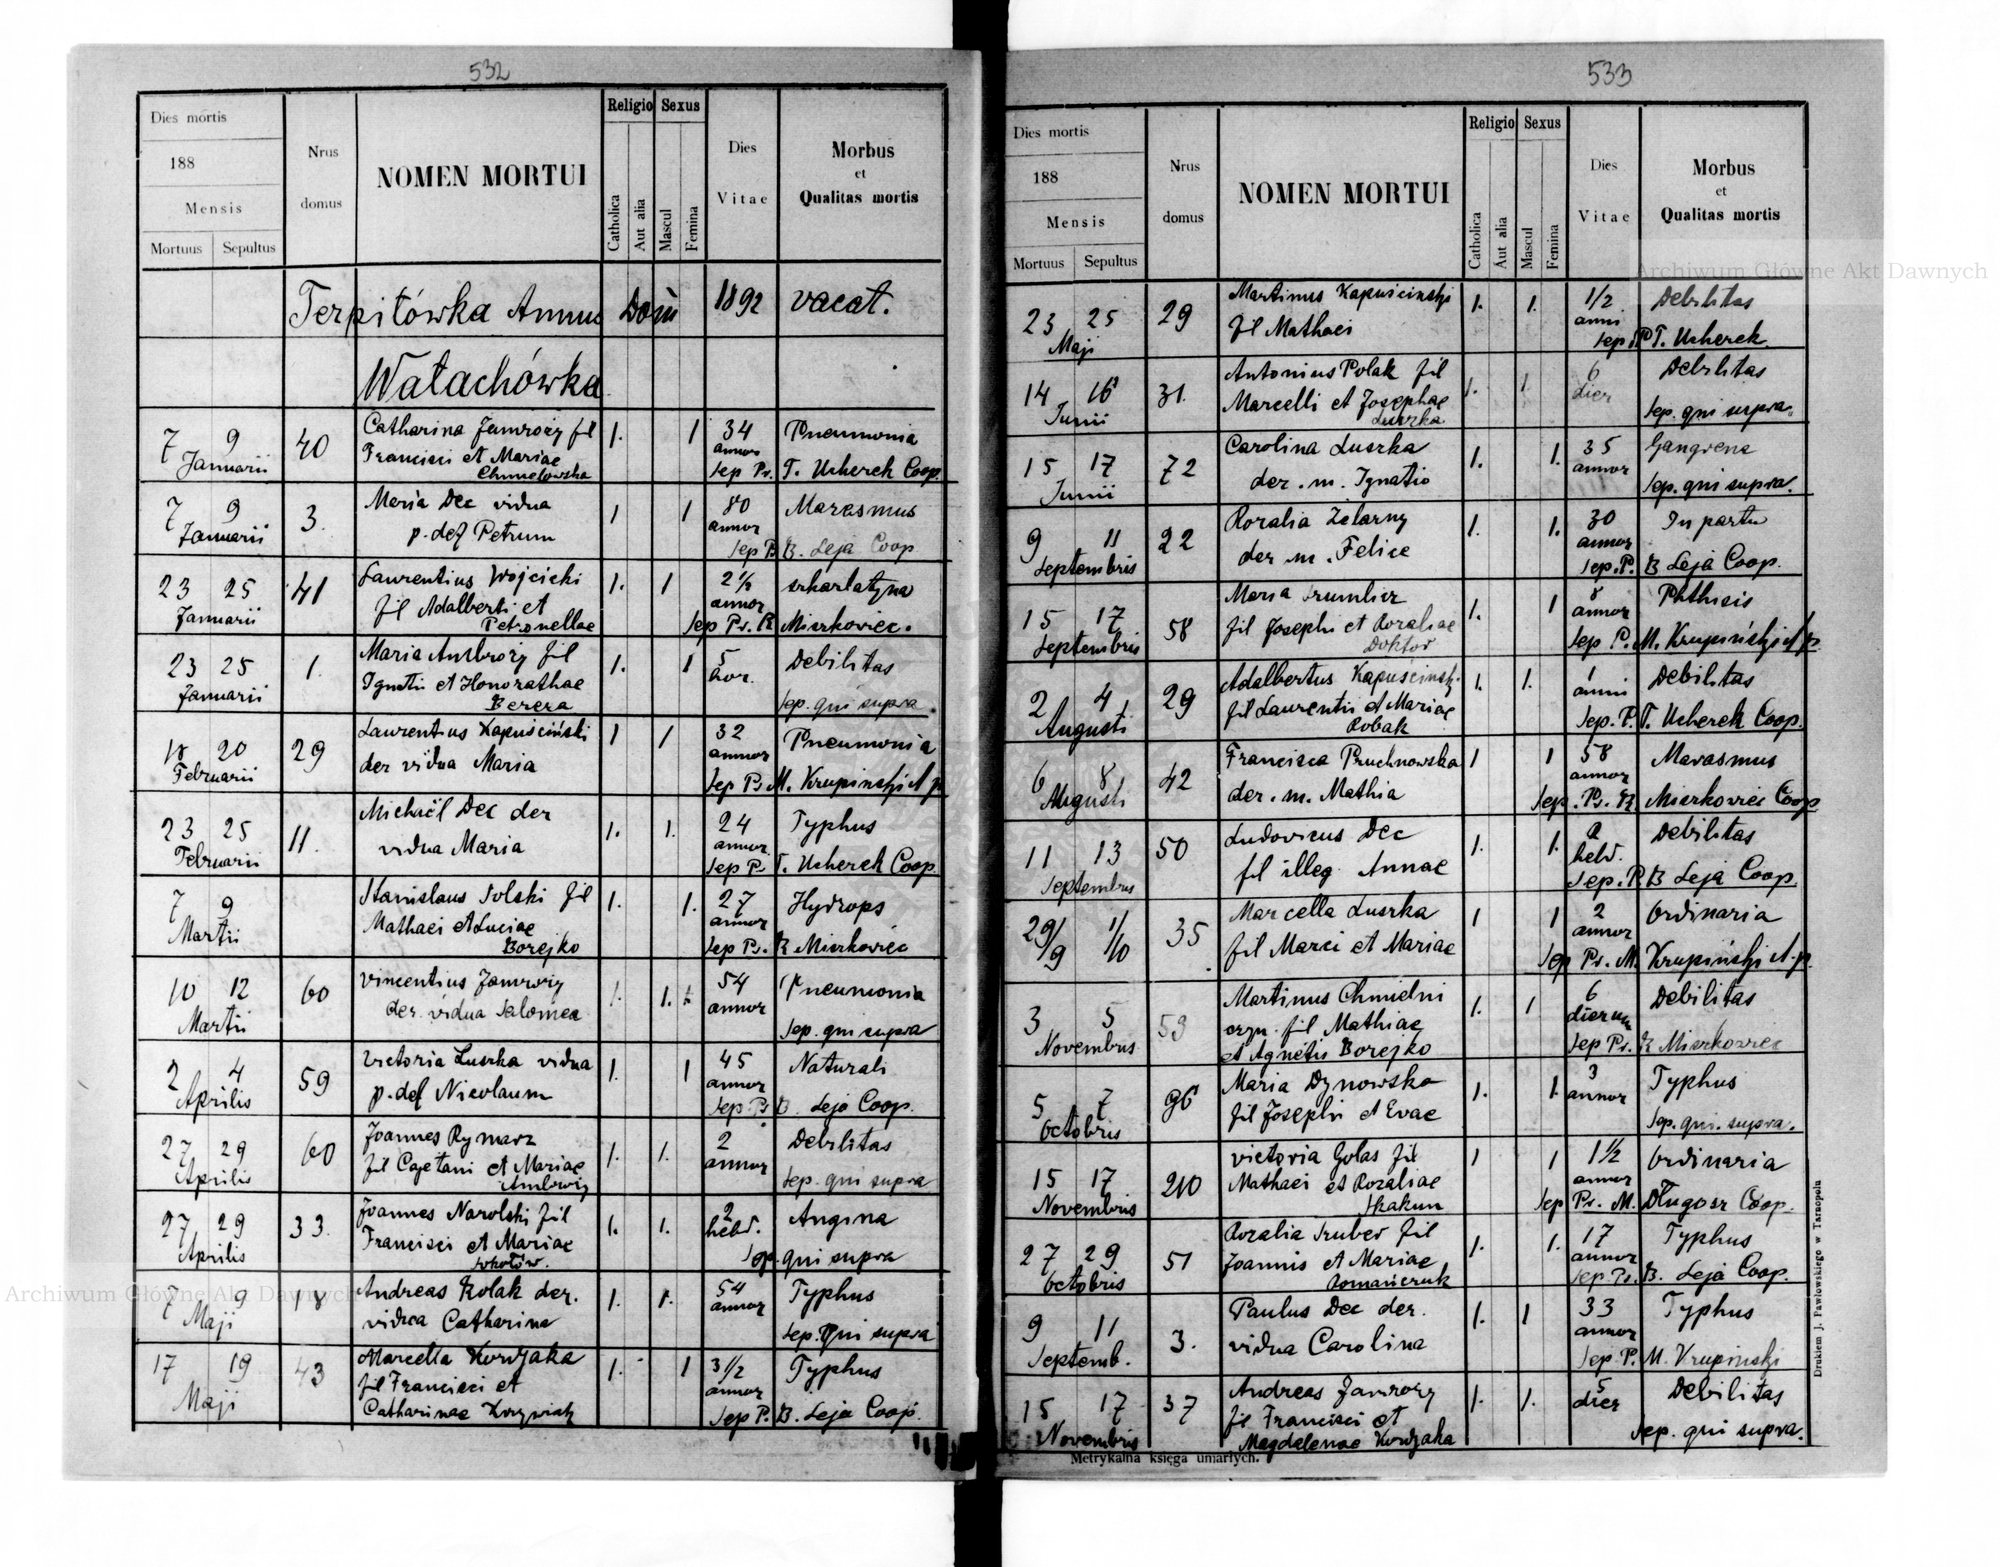 532
Dies mortis
188
Mensis
Mortuus Sepultus
Nrus domus
NOMEN MORTUI
Religio
Catholica
Aut alia
Sexus
Mascul
Femina
Dies Vitae
Morbus
et
Qualitas mortis
Terpitówka Annus Dom 1892 vacat.
Watachówka
7 9 Januarii 40
Catharina Jamroży fil 1. 1 34 annor Pneumonia
Francisci et Mariae
Chmielowska Sep Pr. T. Ucherek Coop.
7 9 Januarii 3.
Maria Dec vidua 1 1 80 annor Marasmus
p. def Petrum Sep P. B. Leja Coop
23 25 Januarii 41
Laurentius Wojcicki 1. 1 2 1/2 annor szkarlatyna
fil Adalberti et
Petronellae Sep Pr. R Mierkoviec.
23 25 Januarii 1.
Maria Ambroży fil 1. 1 5 hor. Debilitas
Ignatii et Honorathae
Bereza Sep. qui supra.
18 20 Februarii 29
Laurentius Kapuściński 1 1 32 annor Pneumonia
der vidua Maria Sep Pr M. Krupiński A p
23 25 Februarii 11.
Michaël Dec der 1. 1. 24 annor. Typhus
vidua Maria Sep Pr. T. Ucherek Coop.
7 9 Martii
Stanislaus Solski fil 1. 1. 27 annor Hydrops
Mathaei et Luciae
Borejko Sep Pr. R Mierkoviec
10 12 Martii 60
Vincentius Jamroży 1. 1. 54 annor Pneumonia
der. vidua Salomea Sep. qui supra
2 4 Aprilis 59
Victoria Luszka vidua 1. 1 45 annor Naturali
p. def Nicolaum Sep. Pr B. Leja Coop.
27 29 Aprilis 60
Joannes Rymarz 1. 1. 2 annor Debilitas
fil Cajetani et Mariae
Ambroży Sep. qui supra
27 29 Aprilis 33.
Joannes Narolski fil 1. 1. 2 hebd. Angina
Francisci et Mariae
Sokołów. Sep. qui supra
7 9 Maji 18
Andreas Kolak der. 1. 1. 54 annor Typhus
vidua Catharina Sep. qui supra
17 19 Maji 43
Marcella Kordjaka 1. 1 3 1/2 annor Typhus
fil Francisci et
Catharinae Sep P. B. Leja Coop.
533
Dies mortis
188
Mensis
Mortuus Sepultus
Nrus domus
NOMEN MORTUI
Religio
Catholica
Aut alia
Sexus
Mascul
Femina
Dies Vitae
Morbus
et
Qualitas mortis
23 25 Maji 29
Martinus Kapuściński 1. 1. 1/2 anni Debilitas
fil Mathaei Sep. P T. Ucherek
14 16 Junii 31.
Antonius Polak fil 1. 1. 6 dier Debilitas
Marcelli et Josephae
Luszka Sep. qui supra.
15 17 Junii 72
Carolina Luszka 1. 1. 35 annor Gangrena
der. m. Ignatio Sep. qui supra.
9 11 Septembris 22
Rozalia Zelazny 1. 1. 30 annor In partu
der m. Felice Sep. P. B Leja Coop.
15 17 Septembris 58
Maria 1. 1 8 annor Phthisis
fil Josephi et Rozaliae
Doktor Sep P. M. Krupiński A p.
2 4 Augusti 29
Adalbertus Kapuściński 1. 1. 1 anni Debilitas
fil Laurentii et Mariae
Robak Sep. P. T. Ucherek Coop.
6 8 Augusti 42
Francisca Pruchnowska 1 1 58 annor Marasmus
der. m. Mathia Sep. Pr. R. Mierkoviec Coop
11 13 Septembris 50
Ludovicus Dec 1. 1. 2 hebd. Debilitas
fil illeg Annae Sep. P. B Leja Coop.
29/9 1/10 35
Marcella Luszka 1 1 2 annor Ordinaria
fil Marci et Mariae Sep Pr. M. Krupiński A. p.
3 5 Novembris 53
Martinus Chmielni 1. 1 6 dierum Debilitas
fil Mathiae
et Agnetis Borejko Sep Pr. R Mierkoviec
5 7 Octobris 96
Maria Dynowska 1. 1. 3 annor Typhus
fil Josephi et Evae Sep. qui. supra.
15 17 Novembris 210
Victoria Golas fil 1 1 1 1/2 annor Ordinaria
Mathaei et Rozaliae
Skakun Sep Pr. M. Długosz Coop.
27 29 Octobris 51
Rozalia Gruber fil 1. 1. 17 annor Typhus
Joannis et Mariae
Romańczuk Sep. Pr. B. Leja Coop.
9 11 Septemb. 3.
Paulus Dec der. 1. 1 33 annor Typhus
vidua Carolina Sep P. M. Krupiński
15 17 Novembris 37
Andreas Jamroży 1. 1. 5 dier Debilitas
fil Francisci et
Magdalenae Kordjaka Sep. qui supra.
Metrykalna księga umarłych.
Drukiem J. Pawłowskiego w Tarnopolu
Archiwum Główne Akt Dawnych
Archiwum Główne Akt Dawnych